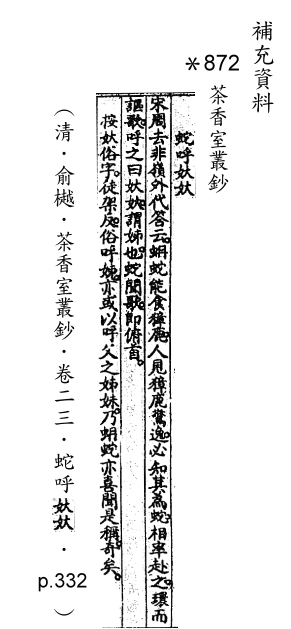 補充資料
*872
茶香室叢鈔
蛇呼妖妖
宋周去非嶺外代答云。蚺蛇能食獐鹿。人見獐鹿驚逸。必知其為蛇。相率赴之。環而
謳歌。呼之曰妖妖。謂姊也。蛇聞歌。即俯首。
按妖俗字。徒架反。俗呼媿。亦或以呼父之姊妹。乃蚺蛇亦喜聞是稱。奇矣。
（清．俞樾．茶香室叢鈔．卷二三．蛇呼妖妖．
p.332）